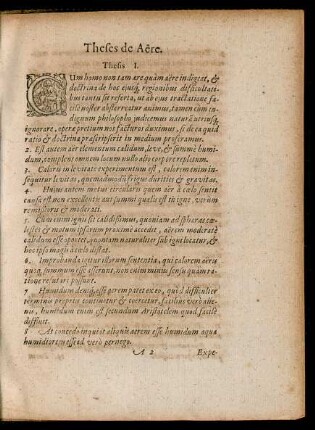 Theses de Aëre.
Thesis I.
CUm homo non tam are quàm aëre indigeat, &
doctrina de hoc eiusq́; regionibus difficultati-
bus tantis sit referta, ut ab ejus tractatione fa-
cilè noster abhorreat animus, tamen cùm in-
dignum philosopho judicemus naturã aëris
ignorare, operæ pretium nos facturos duximus, si de eâ quid
ratio & doctrina præscripserit in medium proferamus.
2. Est autem aër elementum calidum, leve, & summè humi-
dum, complens omnem locum nullo alio corpore repletum.
3. Caloris in levitate experimentum est, calorem enim in-
sequitur levitas, quemadmodũ frigus durities & gravitas.
4. Hujus autem motus circularis quem aër à cœlo sentit
causa est non excellentis aut summi qualis est in igne, verùm
remissioris & moderati.
5. Cùm enim ignis sit calidissimus, quoniam ad sphæras cœ-
lestes & motum ipsarum proximè accedit, aërem moderatè
calidum esse oportet, quoniam naturaliter sub igne locatur, &
hoc ipso magis à cœlo distat.
6. Improbanda igitur illorum sententia, qui calorem aëru
quoq́; summum esse asserant, non enim minus sensu quàm ra-
tione refutari possunt.
7. Humidum deniq́; esse aërem patet ex eo, quòd difficulter
termino proprio continetur, & coercetur, facilius verò alie-
no, humidum enim est secundum Aristotelem quod facilè
diffluit.
8. At concedo inquit aliquis aërem esse humidum aqua
humidiorem esse id verò pernego.
A 2 Expe-